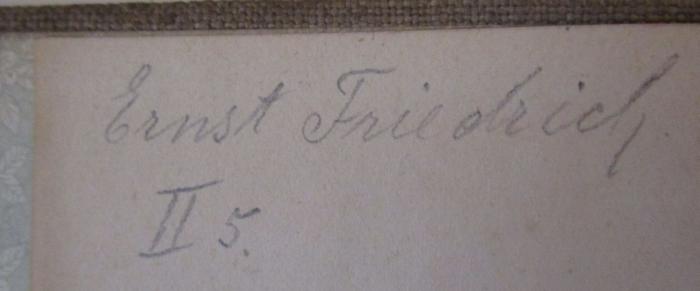 Ernst Friedrich.
II 5.